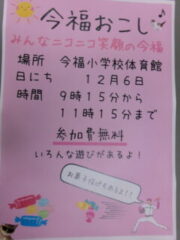 今福おこし
みんなニコニコ笑顔の今福
場所 今福小学校体育館
日にち 12月6日
時間 9時15分から
11時15分まで
参加費無料
いろんな遊びがあるよ!
お菓子投げもあるよ!!